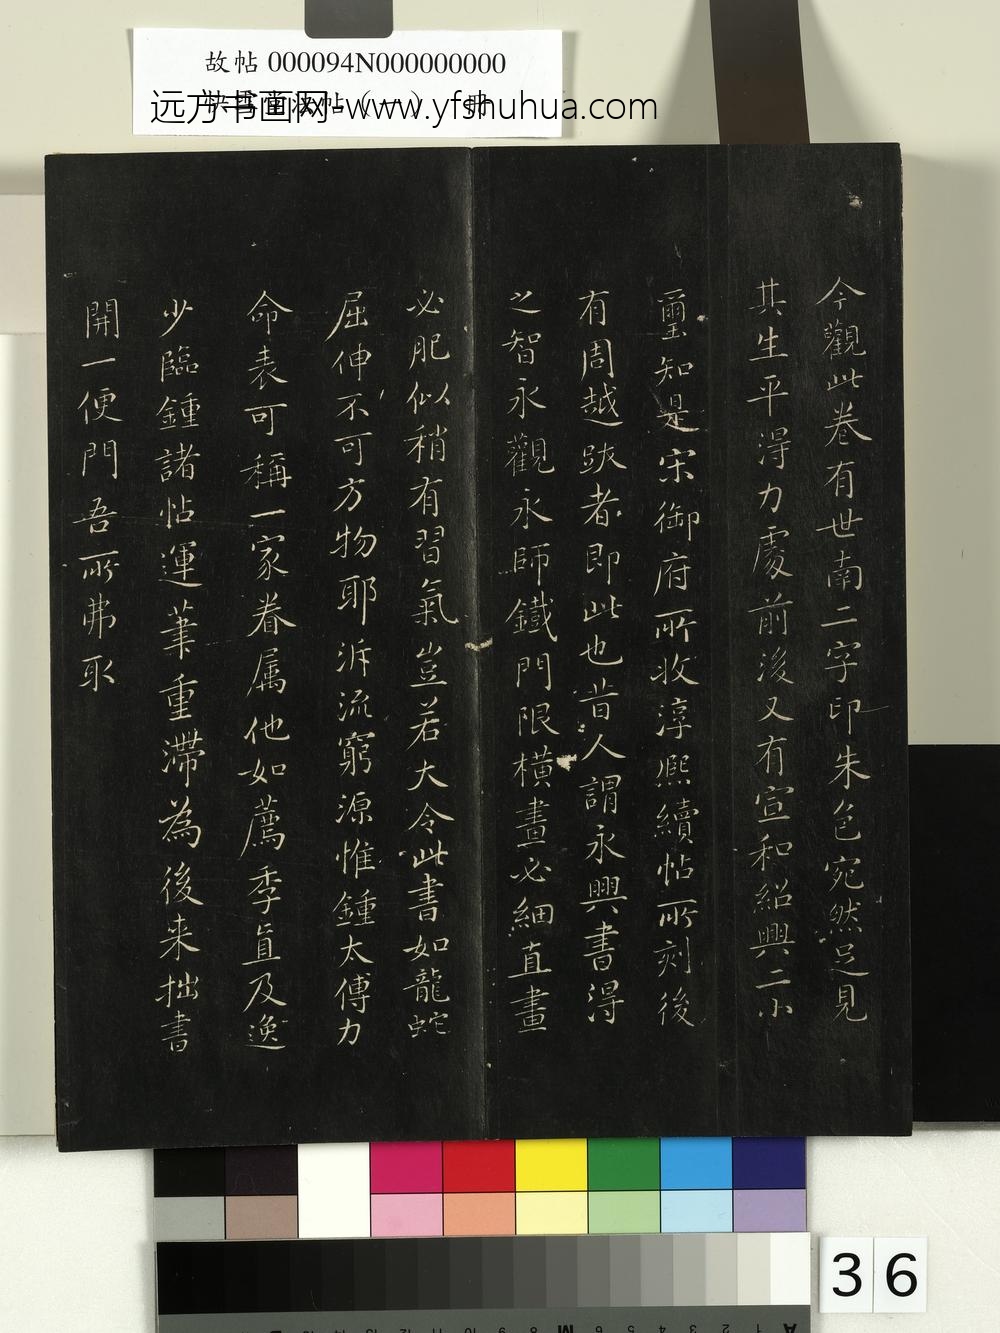 故帖000094N000000000
远方书画网-www.yfshuhua.com
今觀此卷有世南二字印朱色宛然足見
其生平得力處前後又有宣和紹興二小
璽知是宋御府所收淳熙續帖所刻後
有周越跋者即此也昔人謂永興書得
之智永觀永師鐵門限橫畫必細直畫
必肥似稍有習氣豈若大令此書如龍蛇
屈伸不可方物耶泝流窮源惟鍾太傅力
命表可稱一家眷属他如薦季直及逸
少臨鍾諸帖運筆重滯為後来拙書
開一便門吾所弗取
36
A 1 2 3 4 5 6 M 8 9 10 11 12 13